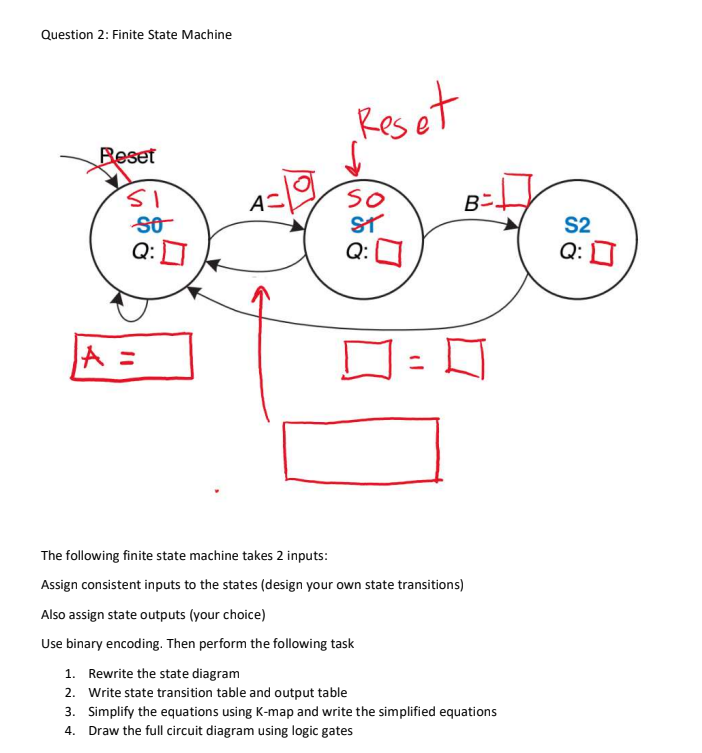 Question 2: Finite State Machine
Reset
Reset
S1
S0
Q:
A=0
S0
S1
Q:
B=
S2
Q:
A =
=
The following finite state machine takes 2 inputs:
Assign consistent inputs to the states (design your own state transitions)
Also assign state outputs (your choice)
Use binary encoding. Then perform the following task
1. Rewrite the state diagram
2. Write state transition table and output table
3. Simplify the equations using K-map and write the simplified equations
4. Draw the full circuit diagram using logic gates